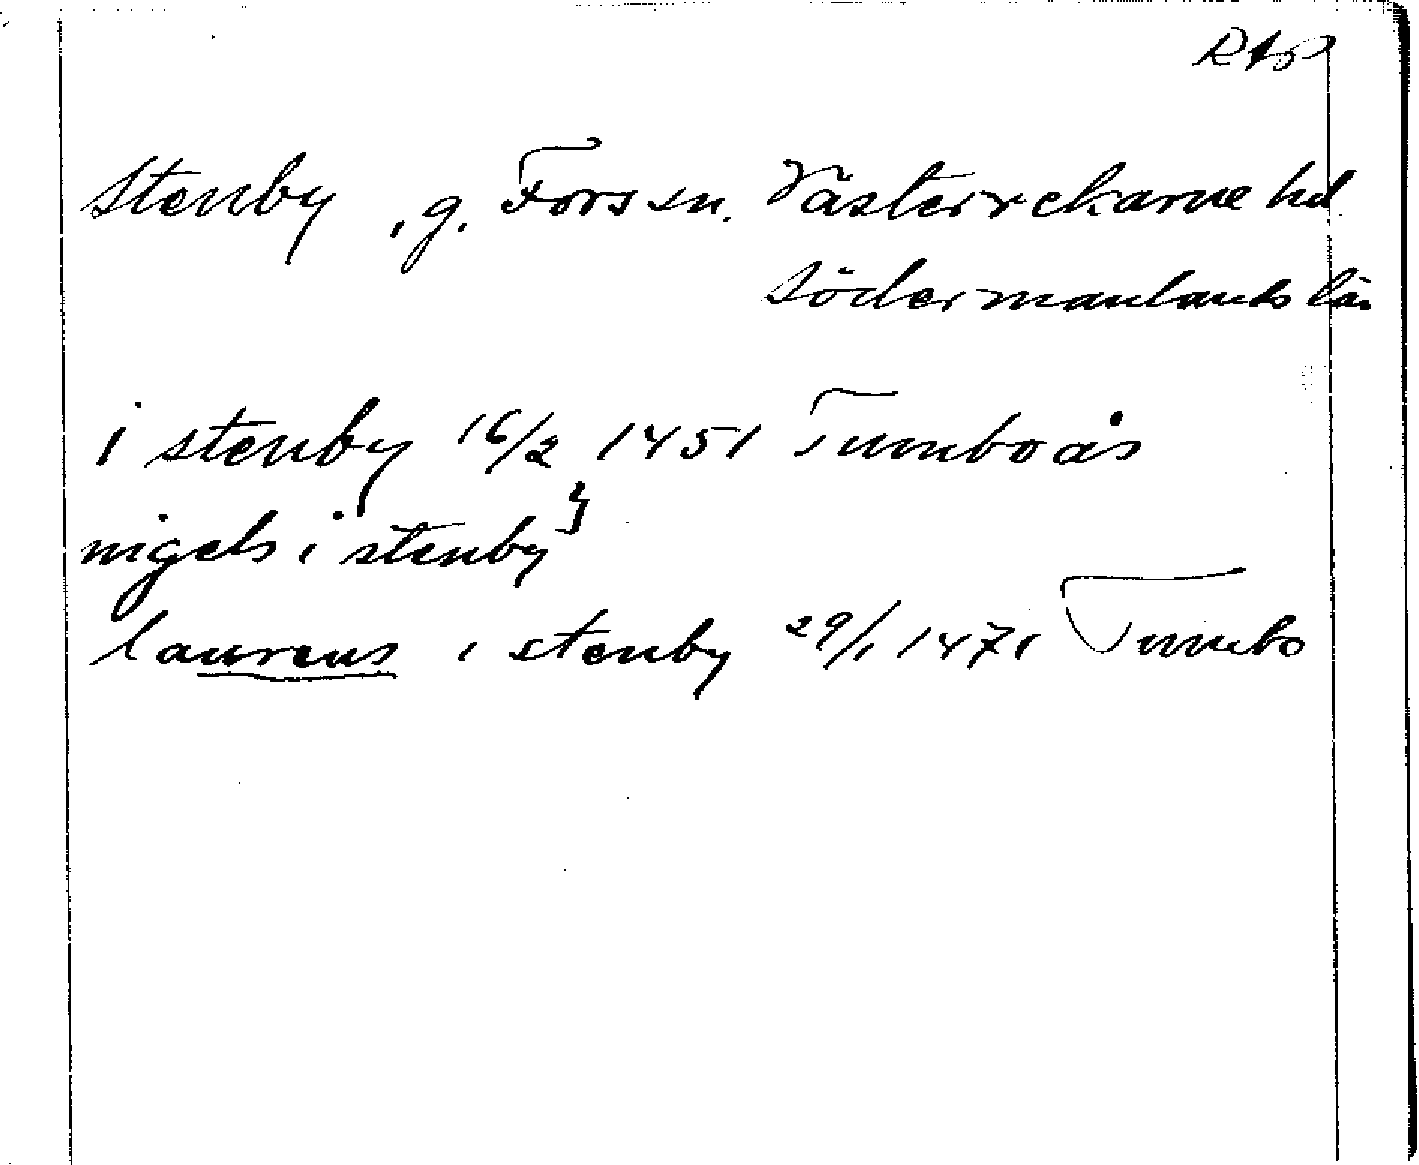 RAP
Stenby, g. Fors sn. Västerrekarne hd
Södermanlands län
i stenby 16/2 1451 Tumboås
nigels i stenby
laurens i stenby 29/1 1471 Tumbo